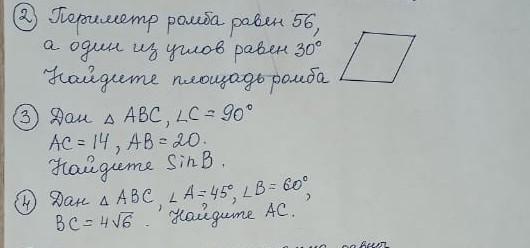 ② Периметр ромба равен 56,
а один из углов равен 30°
Найдите площадь ромба
③ Дан △ ABC, ∠C = 90°
AC = 14, AB = 20.
Найдите SinB.
④ Дан △ ABC, ∠A = 45°, ∠B = 60°,
BC = 4√6. Найдите AC.